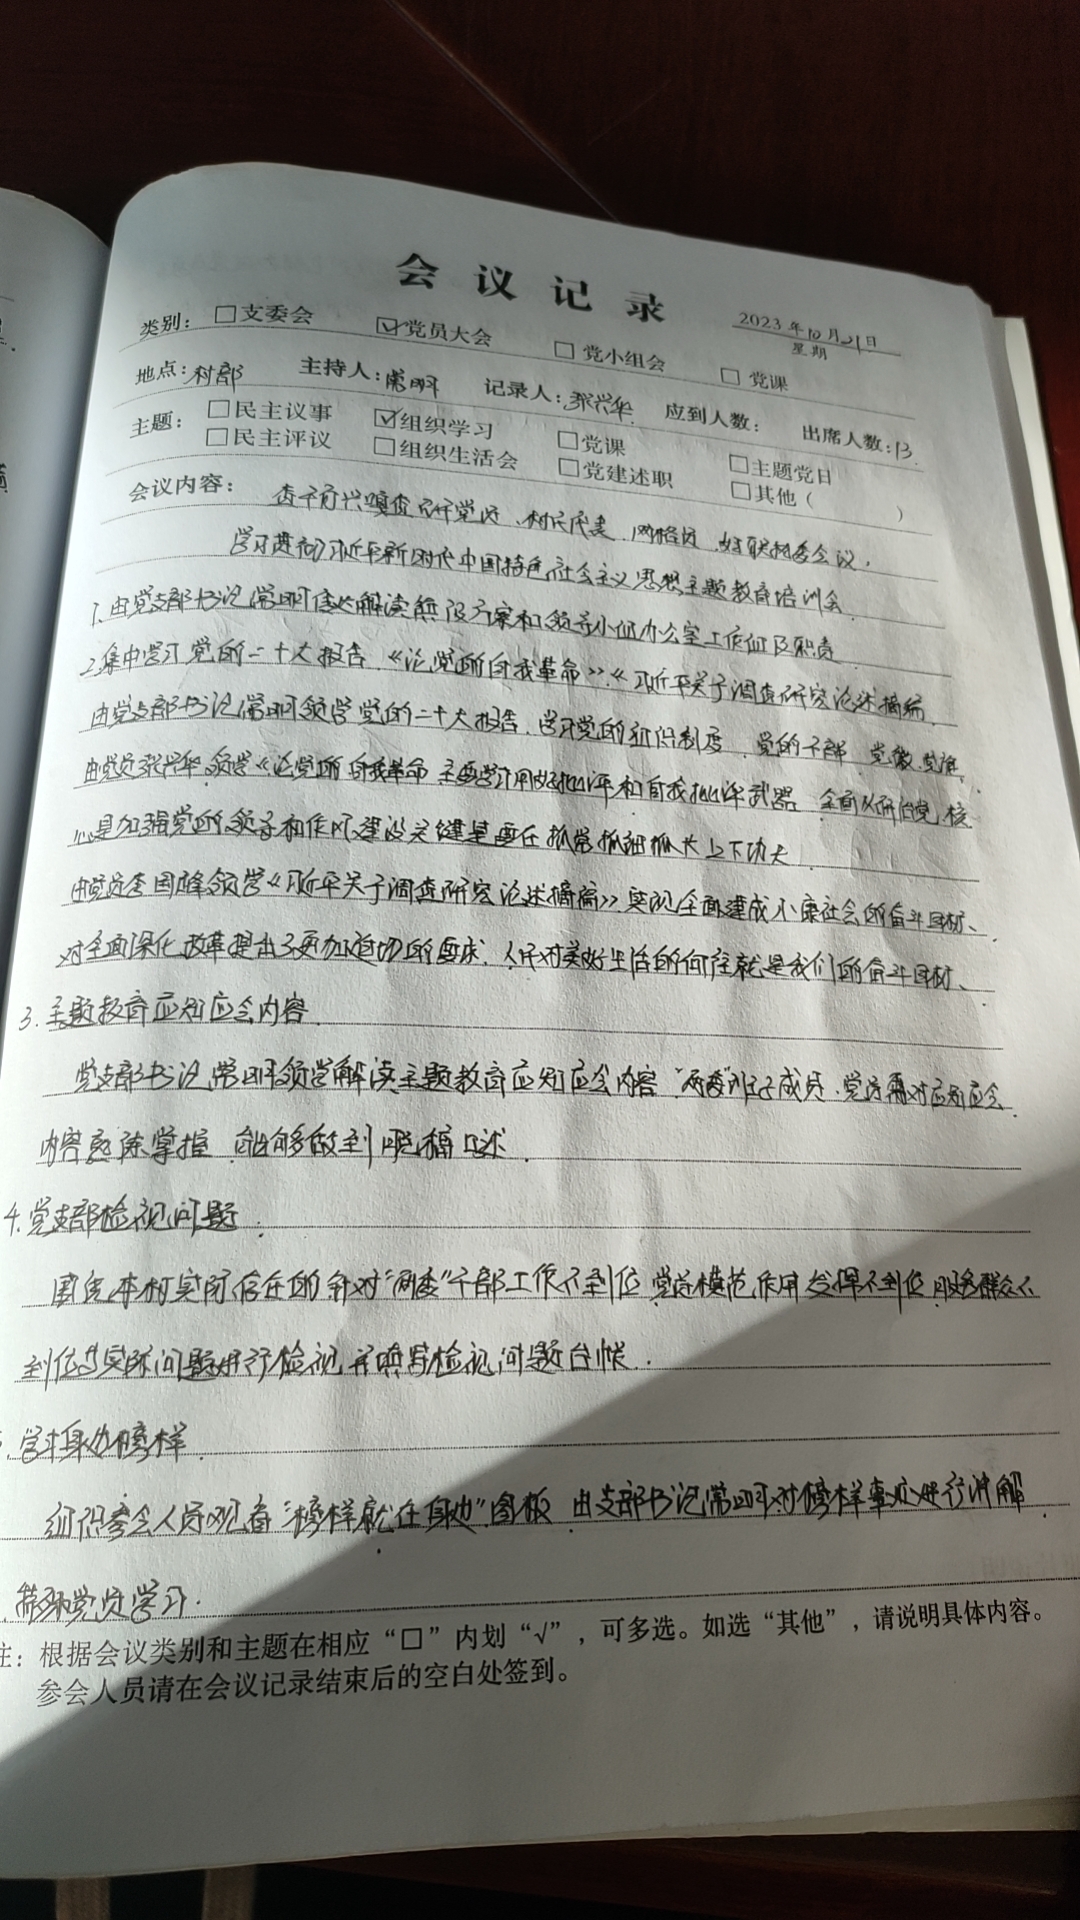 会议记录
2023年10月21日
星期
类别：□支委会 ☑党员大会 □党小组会 □党课
地点：村部 主持人：常明 记录人：张兴华 应到人数： 出席人数：13
主题：□民主议事 ☑组织学习 □党课 □主题党日
□民主评议 □组织生活会 □党建述职 □其他（ ）
会议内容： 召开党员、村民代表、网格员、妇联村委会议，
学习贯彻习近平新时代中国特色社会主义思想主题教育培训会
1.由党支部书记常明传达解读 方案和领导小组办公室工作 职责
2.集中学习党的二十大报告、《论党的自我革命》、《习近平关于调查研究论述摘编
由党支部书记常明领学党的二十大报告、学习党的组织制度、党的干部、党徽党旗、
由党员张兴华领学《论党的自我革命 主要学习用好批评和自我批评武器 全面从严治党核
心是加强党的领导和作风建设关键是要在抓常抓细抓长上下功夫
由党员李国峰领学《习近平关于调查研究论述摘编》、实现全面建成小康社会的奋斗目标、
对全面深化改革提出了更加迫切的要求、人民对美好生活的向往就是我们的奋斗目标、
3.主题教育应知应会内容
党支部书记常明领学解读主题教育应知应会内容"两委"班子成员、党员需对应知应会
内容熟练掌握 能够做到脱稿口述
4.党支部检视问题
本村实际存在的针对"两委"干部工作不到位 党员模范作用发挥不到位 服务群众不
到位等实际问题进行检视并填写检视问题台帐.
学习身边榜样
组织参会人员观看"榜样就在身边"图板 由支部书记常明对榜样事迹进行讲解
党员学习.
注：根据会议类别和主题在相应“□”内划“√”，可多选。如选“其他”，请说明具体内容。
参会人员请在会议记录结束后的空白处签到。